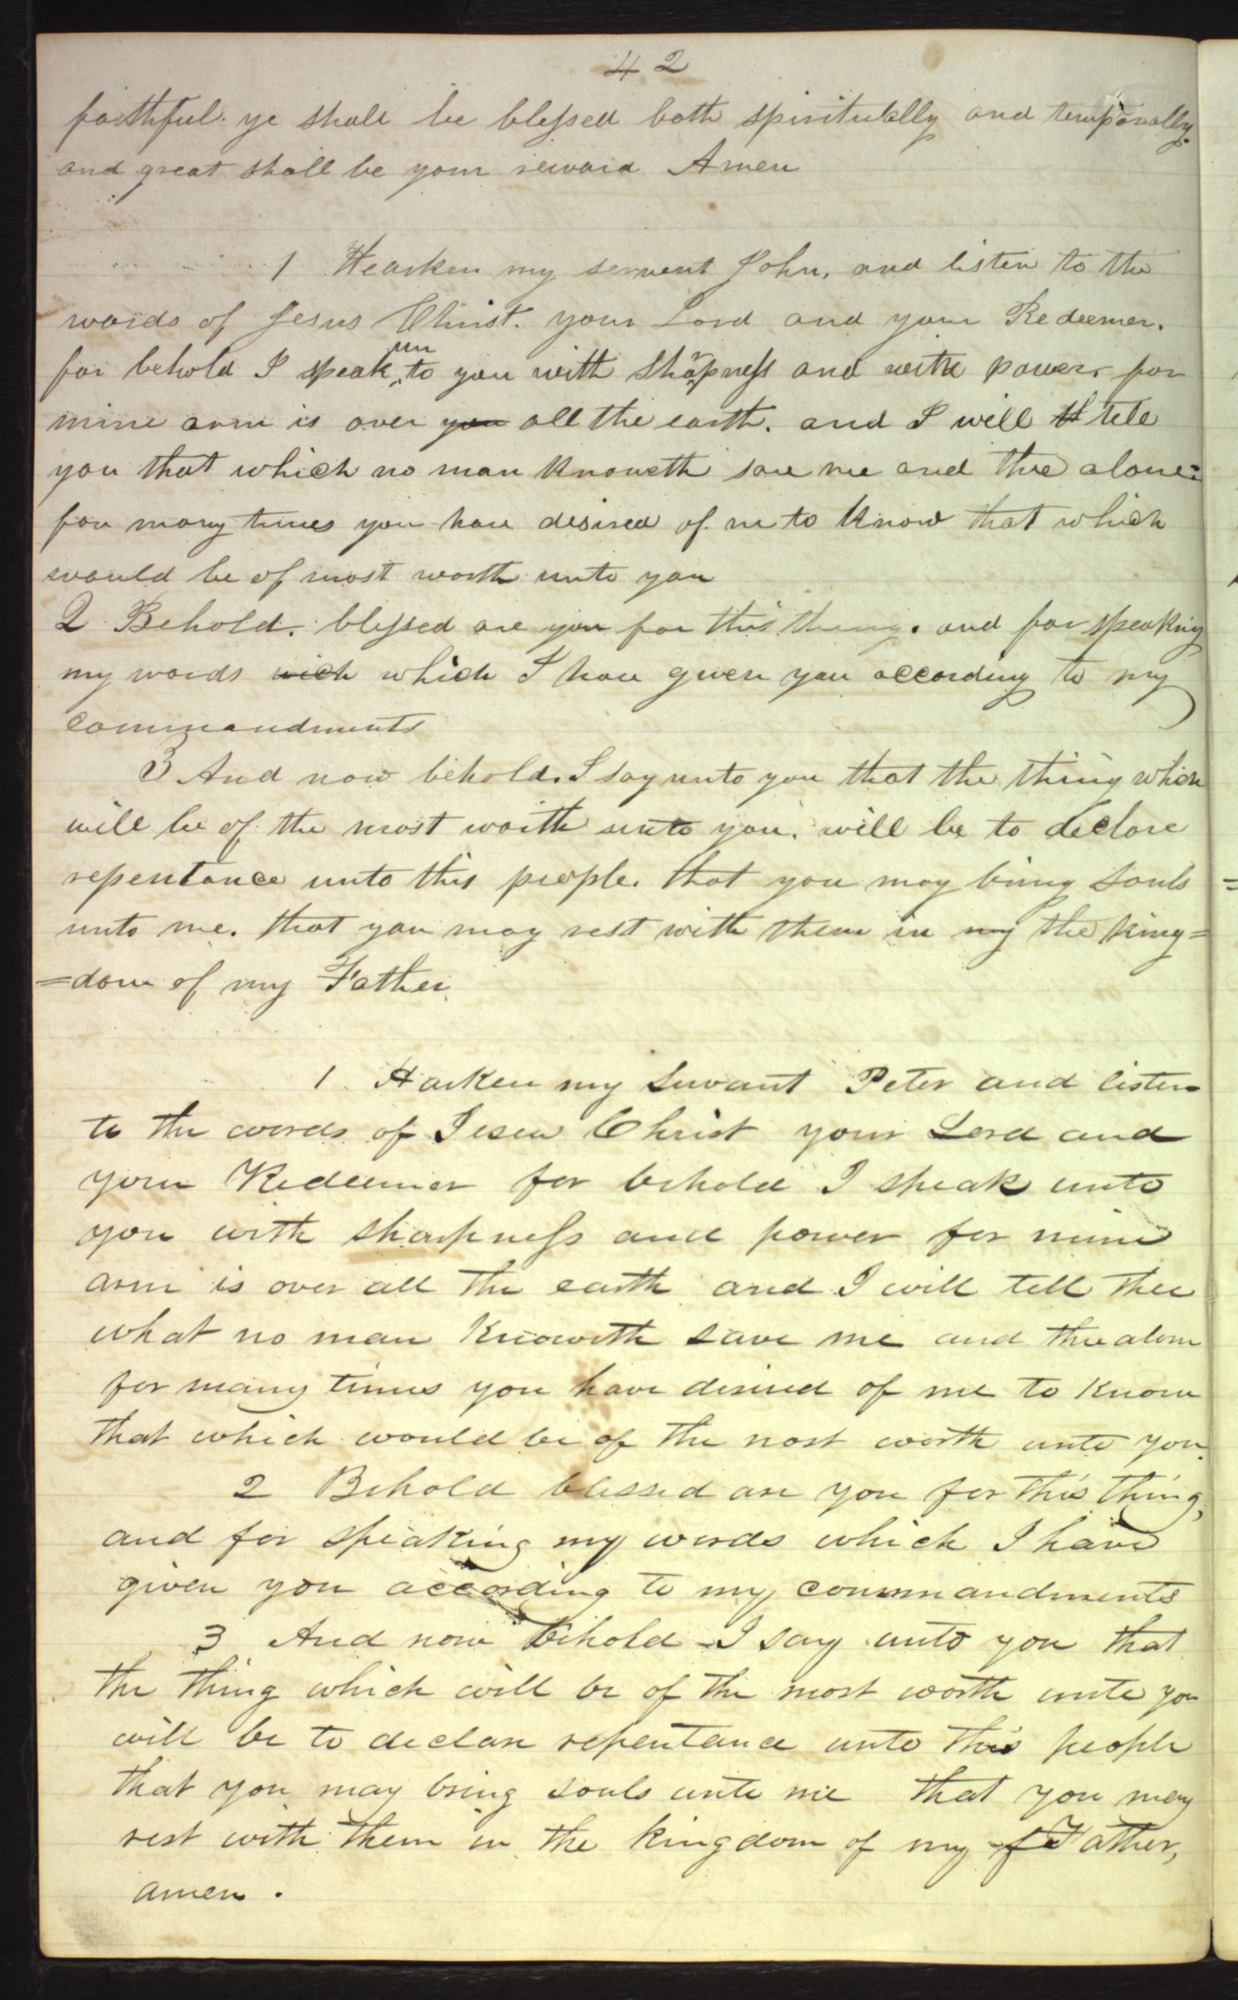 42
faithful ye shall be blessed both spiritually and temporally.
and great shall be your reward Amen
1 Hearken my servent John, and listen to the
words of Jesus Christ. your Lord and your Redeemer.
for behold I speak unto you with sharpness and with power. for
mine arm is over you all the earth. and I will th tell
you that which no man knoweth save me and thee alone:
for many times you have desired of me to know that which
would be of most worth unto you
2 Behold. blessed are you for this thing. and for speaking
my words wich which I have given you according to my
commandments
3 And now behold. I say unto you that the thing which
will be of the most worth unto you. will be to declare
repentance unto this people. that you may bring souls
unto me. that you may rest with them in my the king=
=dom of my Father
1 Harken my servant Peter and listen
to the words of Jesus Christ your Lord and
your Redeemer for behold I speak unto
you with sharpness and power for mine
arm is over all the earth and I will tell thee
what no man knoweth save me and thee alone
for many times you have desired of me to know
that which would be of the most worth unto you.
2 Behold blessed are you for this thing,
and for speaking my words which I have
given you according to my commandments
3 And now behold I say unto you that
the thing which will be of the most worth unto you
will be to declare repentance unto this people
that you may bring souls unto me that you may
rest with them in the kingdom of my f Father,
amen.